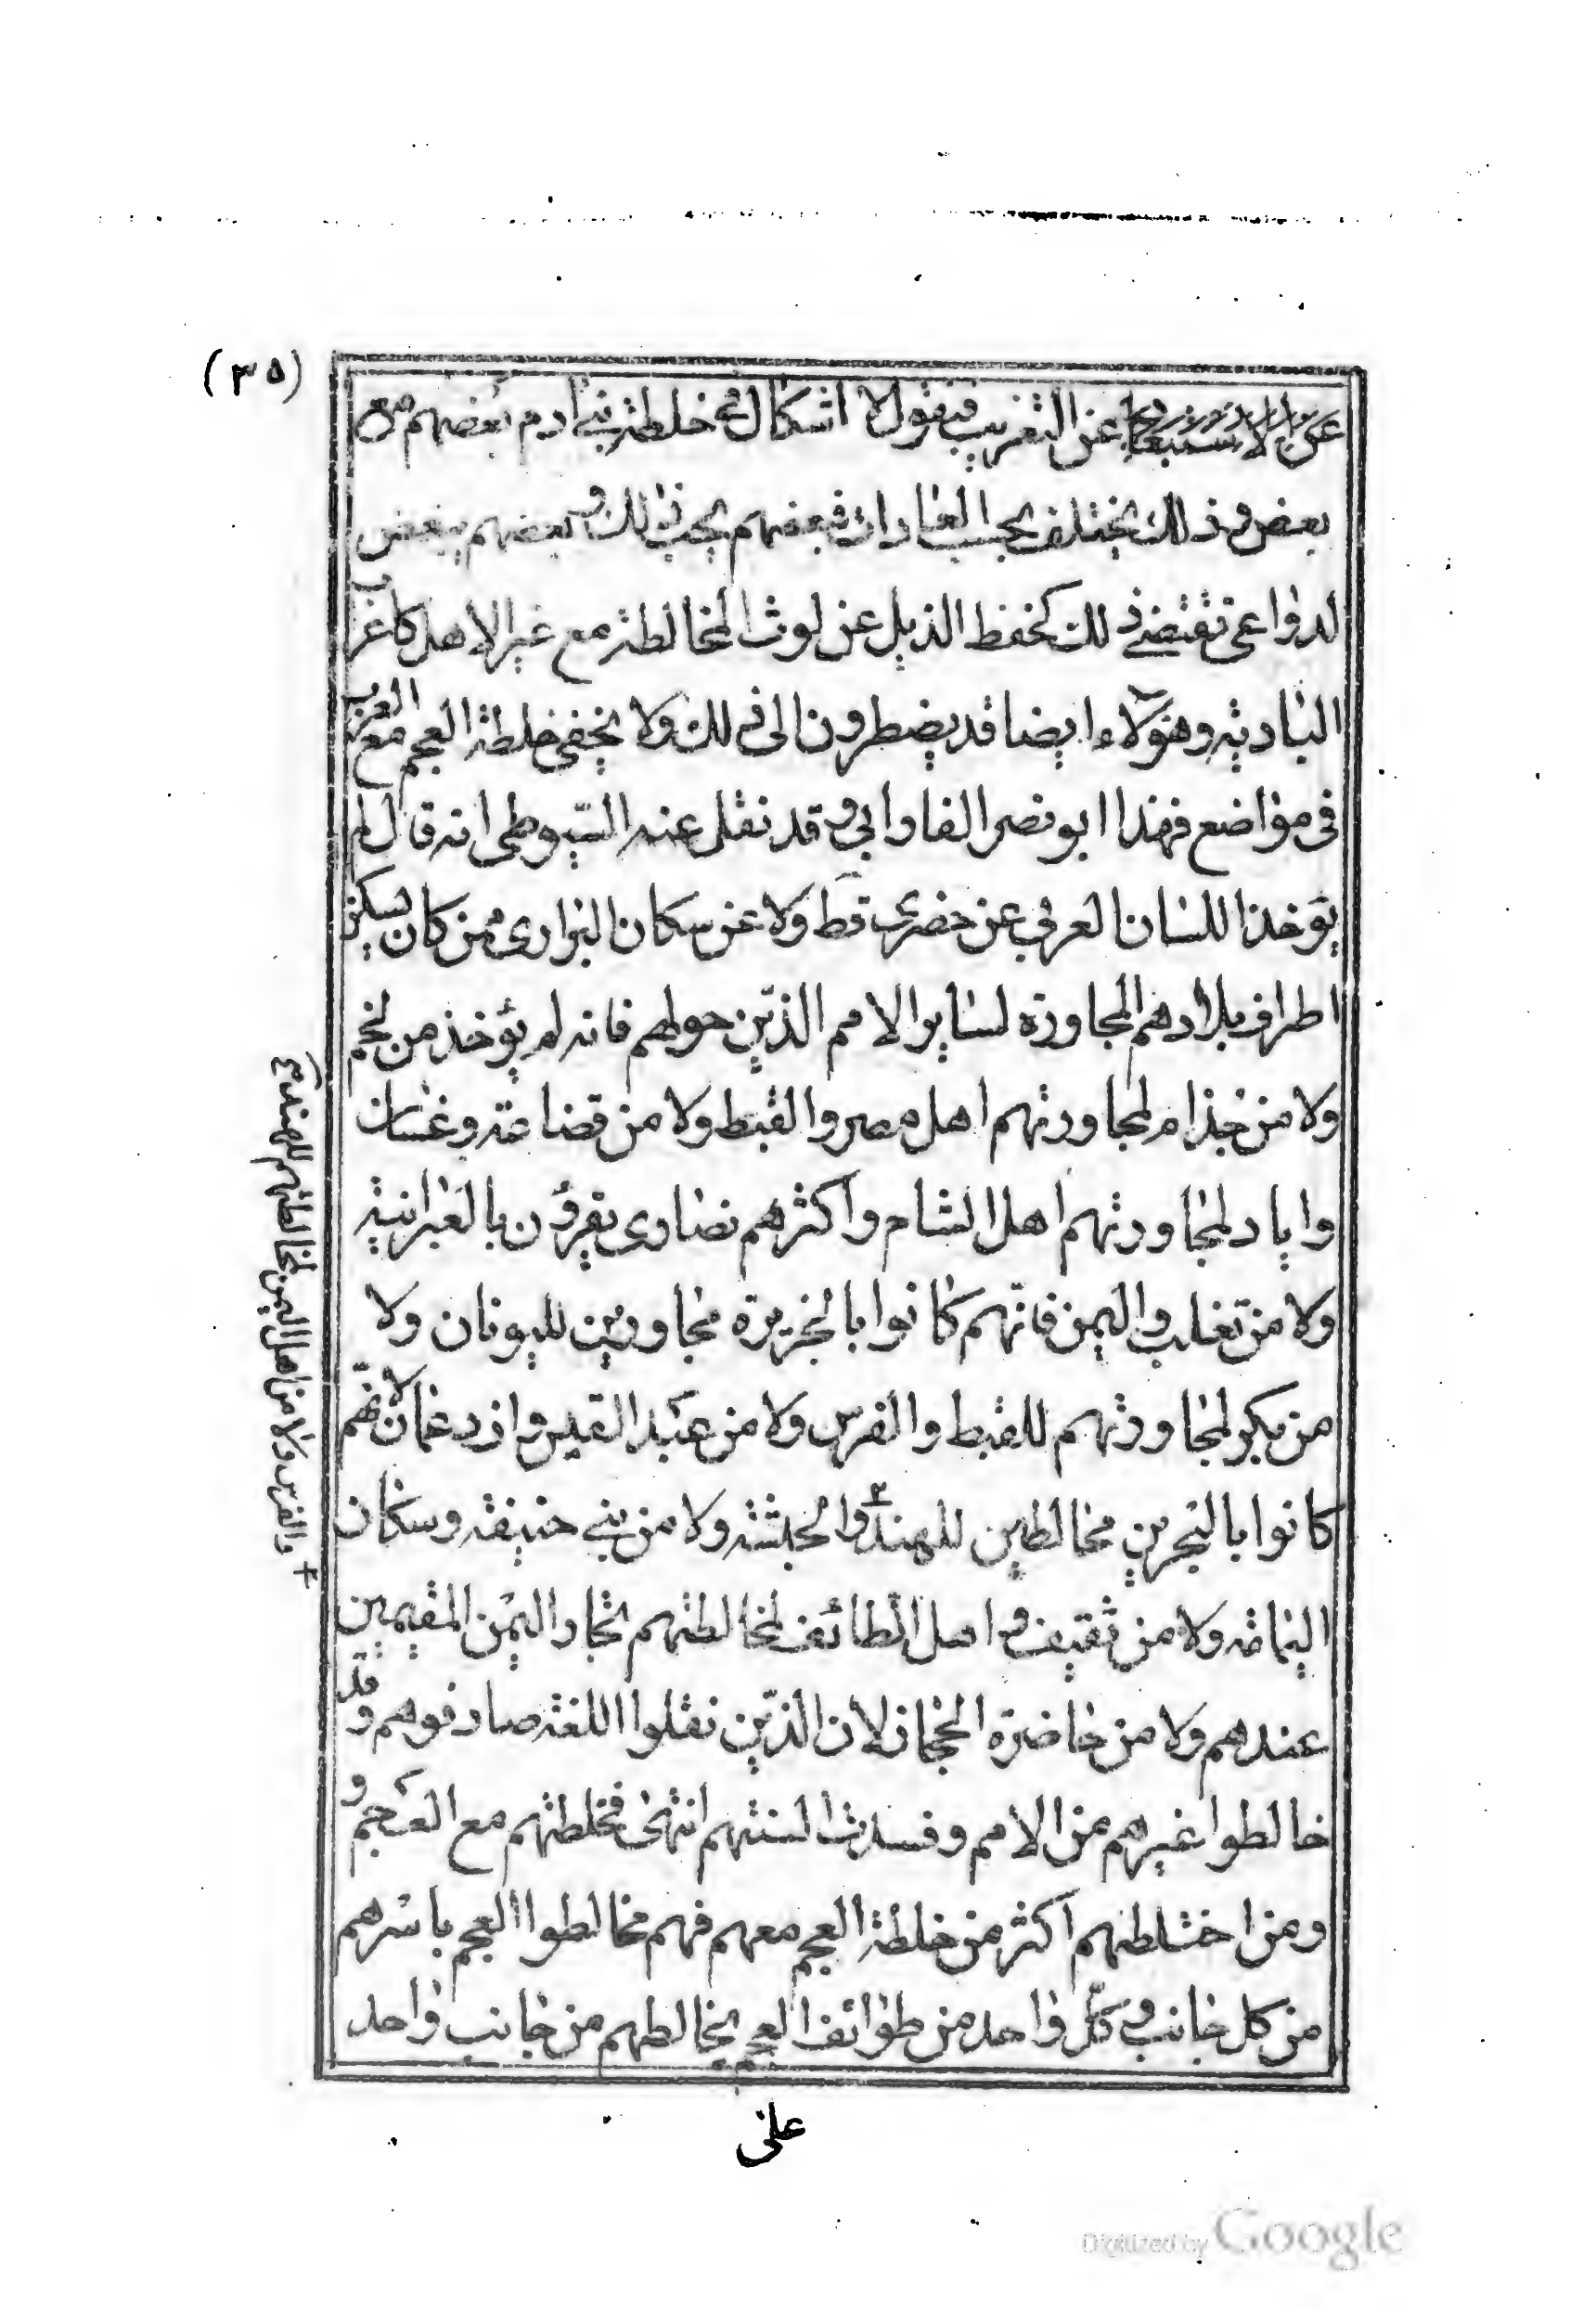 (٣٥)
عن التغريب فنقول لا اشكال فى خلطة بنى ادم بعضهم من
بعض وذلك يختلف بحسب العادات فبعضهم يحب ذلك وبعضهم يبغض
لدواعى تقتضى ذلك كحفظ الذيل عن لوث المخالطة مع غير الاهل كاعراب
البادية وهؤلاء ايضا قد يضطرون الى ذلك ولا يخفى خلطة العجم مع العرب
فى مواضع فهذا ابو نصر الفارابى وقد نقل عنه السيوطى انه قال لم
يؤخذ اللسان العربى عن حضرى قط ولا عن سكان البرارى ممن كان يسكن
اطراف بلادهم المجاورة لساير الامم الذين حولهم فانه لم يؤخذ من لخم
ولا من جذام لمجاورتهم اهل مصر والقبط ولا من قضاعة وغسان
واياد لمجاورتهم اهل الشام واكثرهم نصارى يقرؤن بالعبرانية
ولا من تغلب واليمن فانهم كانوا بالجزيرة مجاورين لليونان ولا
من بكر لمجاورتهم للقبط والفرس ولا من عبد القيس وازد عمان لانهم
كانوا بالبحرين مخالطين للهند والحبشة ولا من بنى حنيفة وسكان
اليمامة ولا من ثقيف واهل الطائف لمخالطتهم تجار اليمن المقيمين
عندهم ولا من حاضرة الحجاز لان الذين نقلوا اللغة صادفوهم وقد
خالطوا غيرهم من الامم وفسدت السنتهم انتهى فخلطتهم مع العجم و
ومن اختلاطهم اكثر من خلطة العجم معهم فهم مخالطوا العجم باسرهم
من كل جانب وكل واحد من طوائف العجم يخالطهم من جانب واحد
والفرس ولا من اهل اليمن لمخالطتهم للهند
على
Digitized by Google